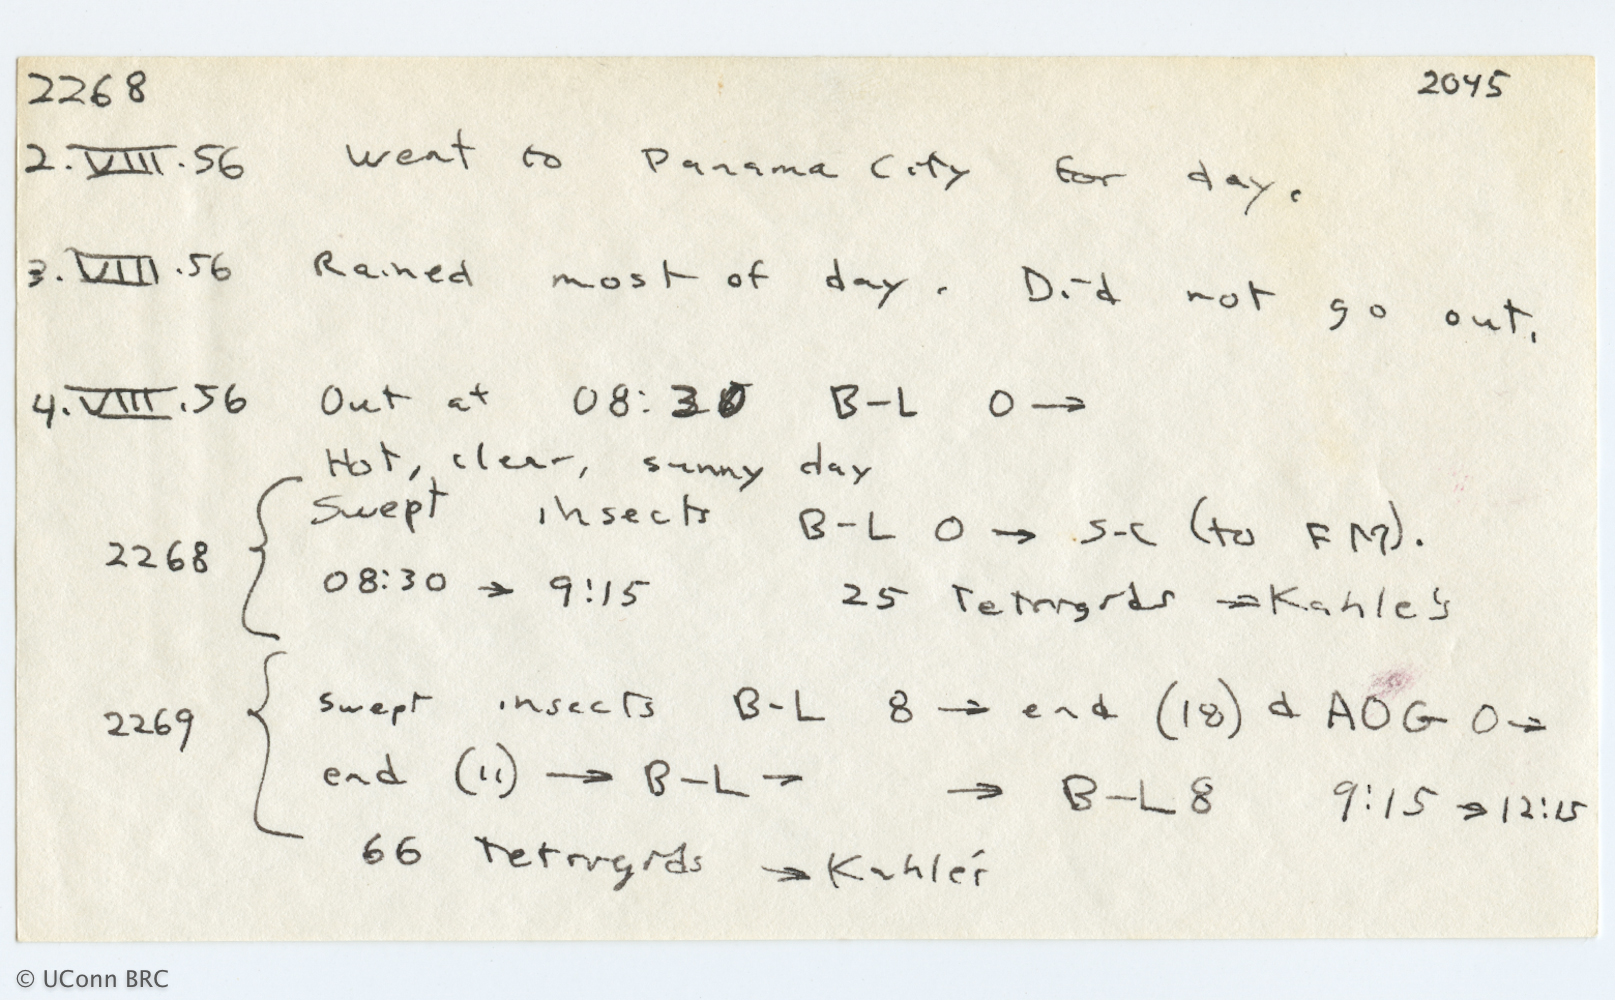 2268 2045
2.VIII.56 Went to Panama City for day.
3.VIII.56 Rained most of day. Did not go out.
4.VIII.56 Out at 08:30 B-L 0 →
Hot, clear, sunny day
2268 { Swept insects B-L 0 → S-C (to FM).
08:30 → 9:15 25 Tetrigids → Kahle's
2269 { swept insects B-L 8 → end (18) & AOG 0 →
end (11) → B-L → → B-L 8 9:15 → 12:15
66 Tetrigids → Kahle's
© UConn BRC